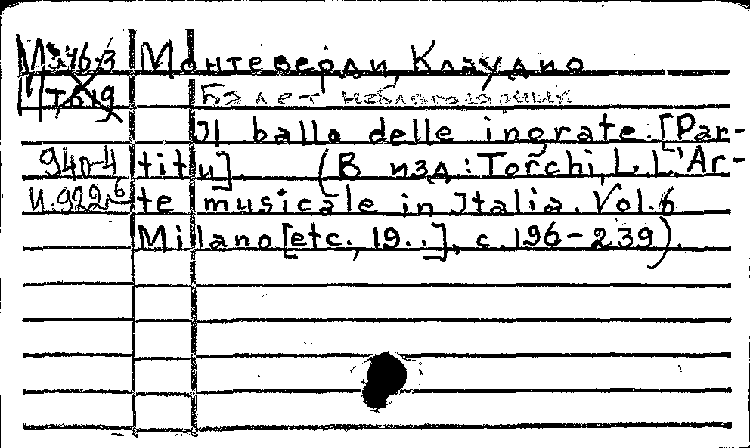 М376-3 Монтеверди, Клаудио
Балет неблагодарных
Il ballo delle ingrate. [Par-
940-4 titu]. (В изд: Torchi, L. L'Ar-
te musicale in Italia. Vol. 6
Milano [etc., 19..], с. 196-239).